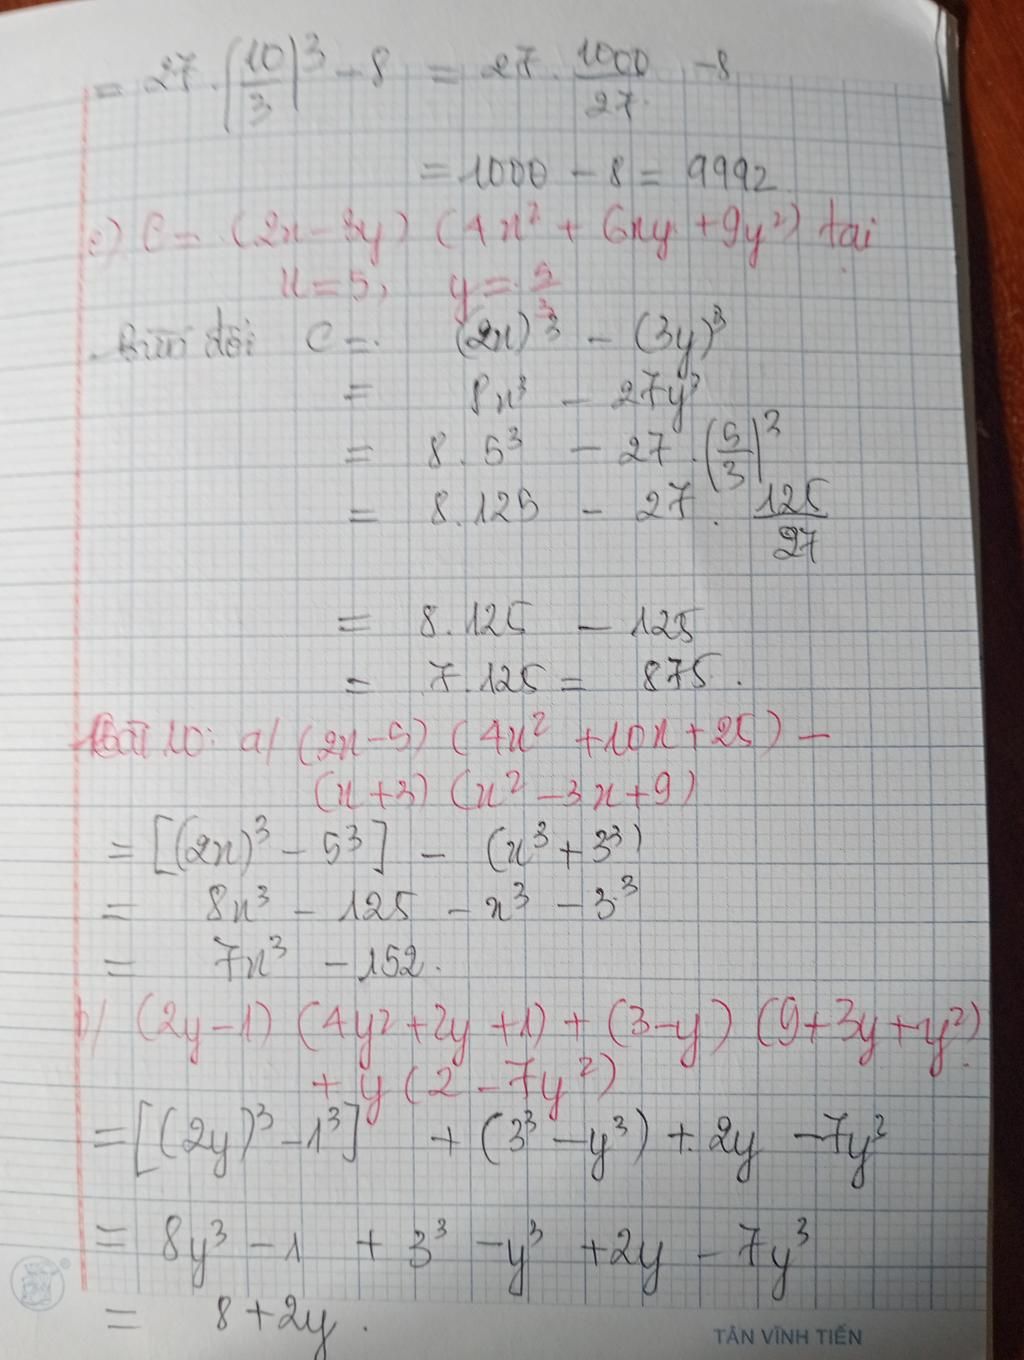 = 27 . (10/3)³ - 8 = 27 . 1000/27 - 8
= 1000 - 8 = 9992
c) C = (2x - 3y) (4x² + 6xy + 9y²) tại
x = 5, y = 5/3
Biến đổi C = (2x)³ - (3y)³
= 8x³ - 27y³
= 8 . 5³ - 27 . (5/3)³
= 8.125 - 27 . 125/27
= 8.125 - 125
= 7.125 = 875.
Bài 10: a/ (2x-5) (4x² + 10x + 25) -
(x+3) (x² - 3x + 9)
= [(2x)³ - 5³] - (x³ + 3³)
= 8x³ - 125 - x³ - 3³
= 7x³ - 152.
b/ (2y - 1) (4y² + 2y + 1) + (3-y) (9 + 3y + y²)
+ y (2 - 7y²)
= [(2y)³ - 1³] + (3³ - y³) + 2y - 7y²
= 8y³ - 1 + 3³ - y³ + 2y - 7y³
= 8 + 2y.
TÂN VĨNH TIẾN